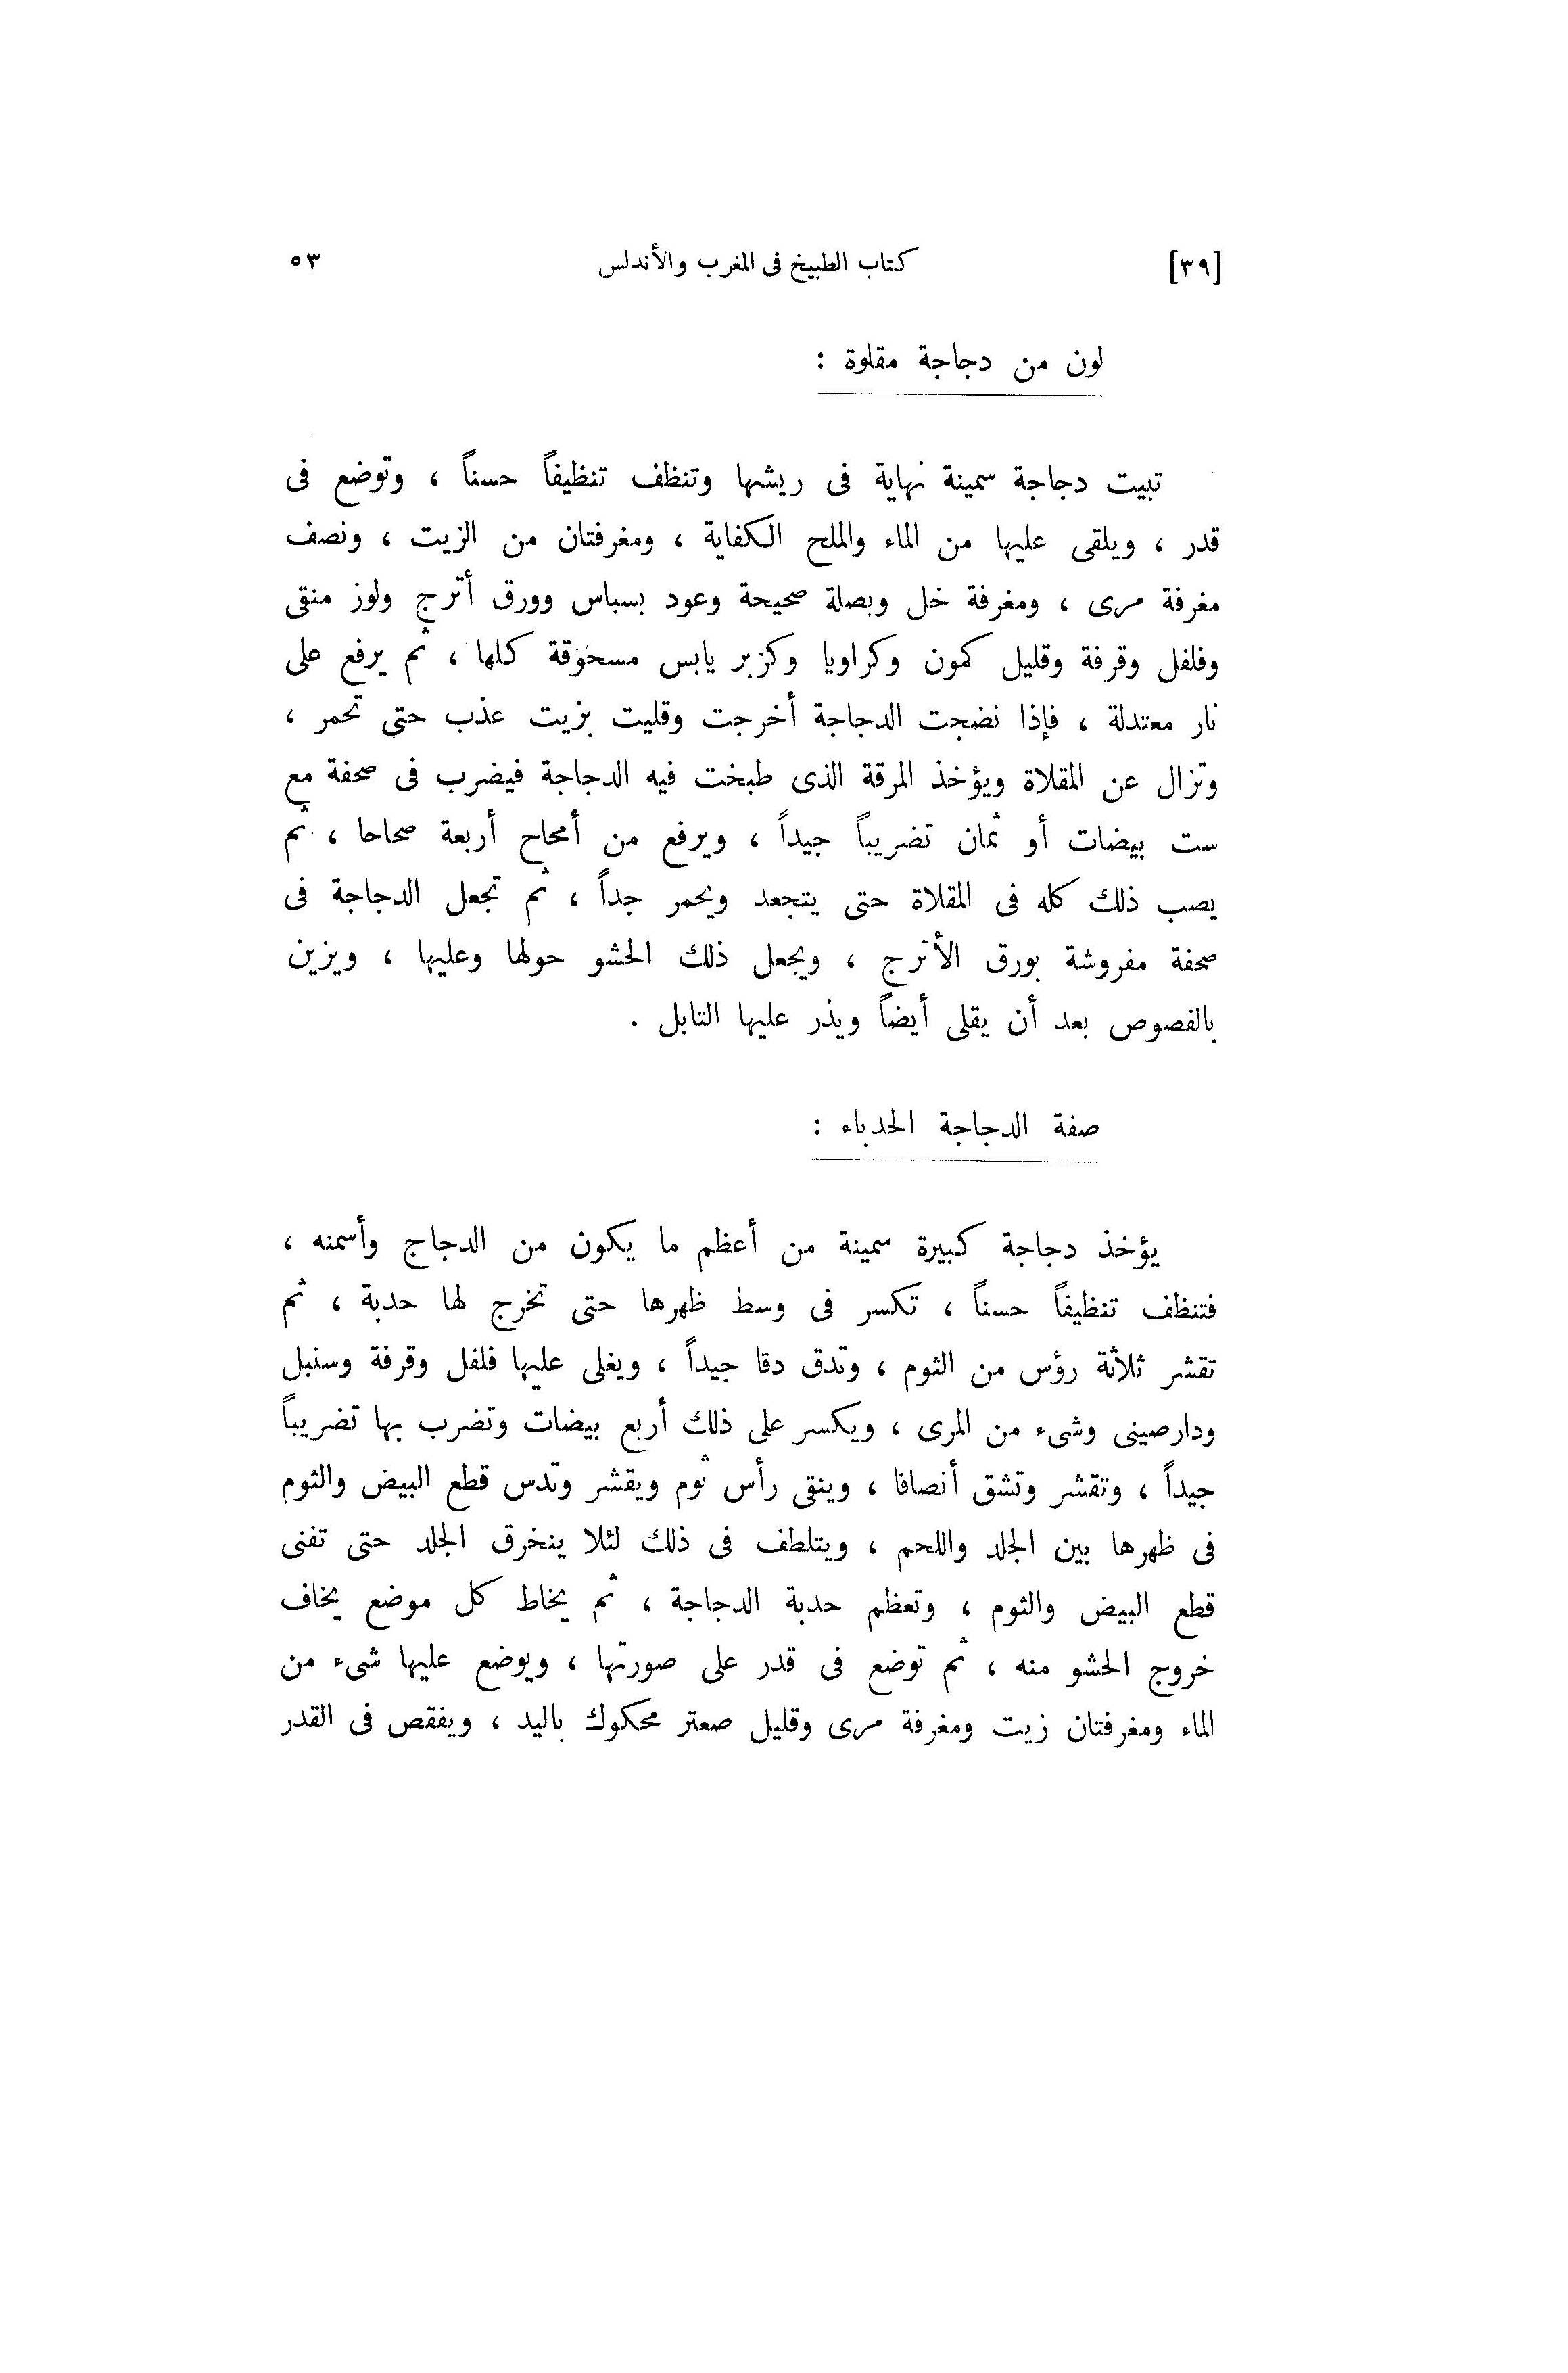 [٣٩] كتاب الطبيخ فى المغرب والأندلس ٥٣
لون من دجاجة مقلوة :
تبيت دجاجة سمينة نهاية فى ريشها وتنظف تنظيفاً حسناً ، وتوضع فى
قدر ، ويلقى عليها من الماء والملح الكفاية ، ومغرفتان من الزيت ، ونصف
مغرفة مرى ، ومغرفة خل وبصلة صحيحة وعود بسباس وورق أترج ولوز منقى
وفلفل وقرفة وقليل كمون وكراويا وكزبر يابس مسحوقة كلها ، ثم يرفع على
نار معتدلة ، فإذا نضجت الدجاجة أخرجت وقليت بزيت عذب حتى تحمر ،
وتزال عن المقلاة ويؤخذ المرقة الذى طبخت فيه الدجاجة فيضرب فى صحفة مع
ست بيضات أو ثمان تضريباً جيداً ، ويرفع من أمحاح أربعة صحاحا ، ثم
يصب ذلك كله فى المقلاة حتى يتجعد ويحمر جداً ، ثم تجعل الدجاجة فى
صحفة مفروشة بورق الأترج ، ويجعل ذلك الحشو حولها وعليها ، ويزين
بالفصوص بعد أن يقلى أيضاً ويذر عليها التابل .
صفة الدجاجة الحدباء :
يؤخذ دجاجة كبيرة سمينة من أعظم ما يكون من الدجاج وأسمنه ،
فتنظف تنظيفاً حسناً ، تكسر فى وسط ظهرها حتى تخرج لها حدبة ، ثم
تقشر ثلاثة رؤس من الثوم ، وتدق دقا جيداً ، ويغلى عليها فلفل وقرفة وسنبل
ودارصينى وشىء من المرى ، ويكسر على ذلك أربع بيضات وتضرب بها تضريباً
جيداً ، وتقشر وتشق أنصافا ، وينقى رأس ثوم ويقشر وتدس قطع البيض والثوم
فى ظهرها بين الجلد واللحم ، ويتلطف فى ذلك لئلا ينخرق الجلد حتى تفنى
قطع البيض والثوم ، وتعظم حدبة الدجاجة ، ثم يخاط كل موضع يخاف
خروج الحشو منه ، ثم توضع فى قدر على صورتها ، ويوضع عليها شىء من
الماء ومغرفتان زيت ومغرفة مرى وقليل صعتر محكوك باليد ، ويفقص فى القدر